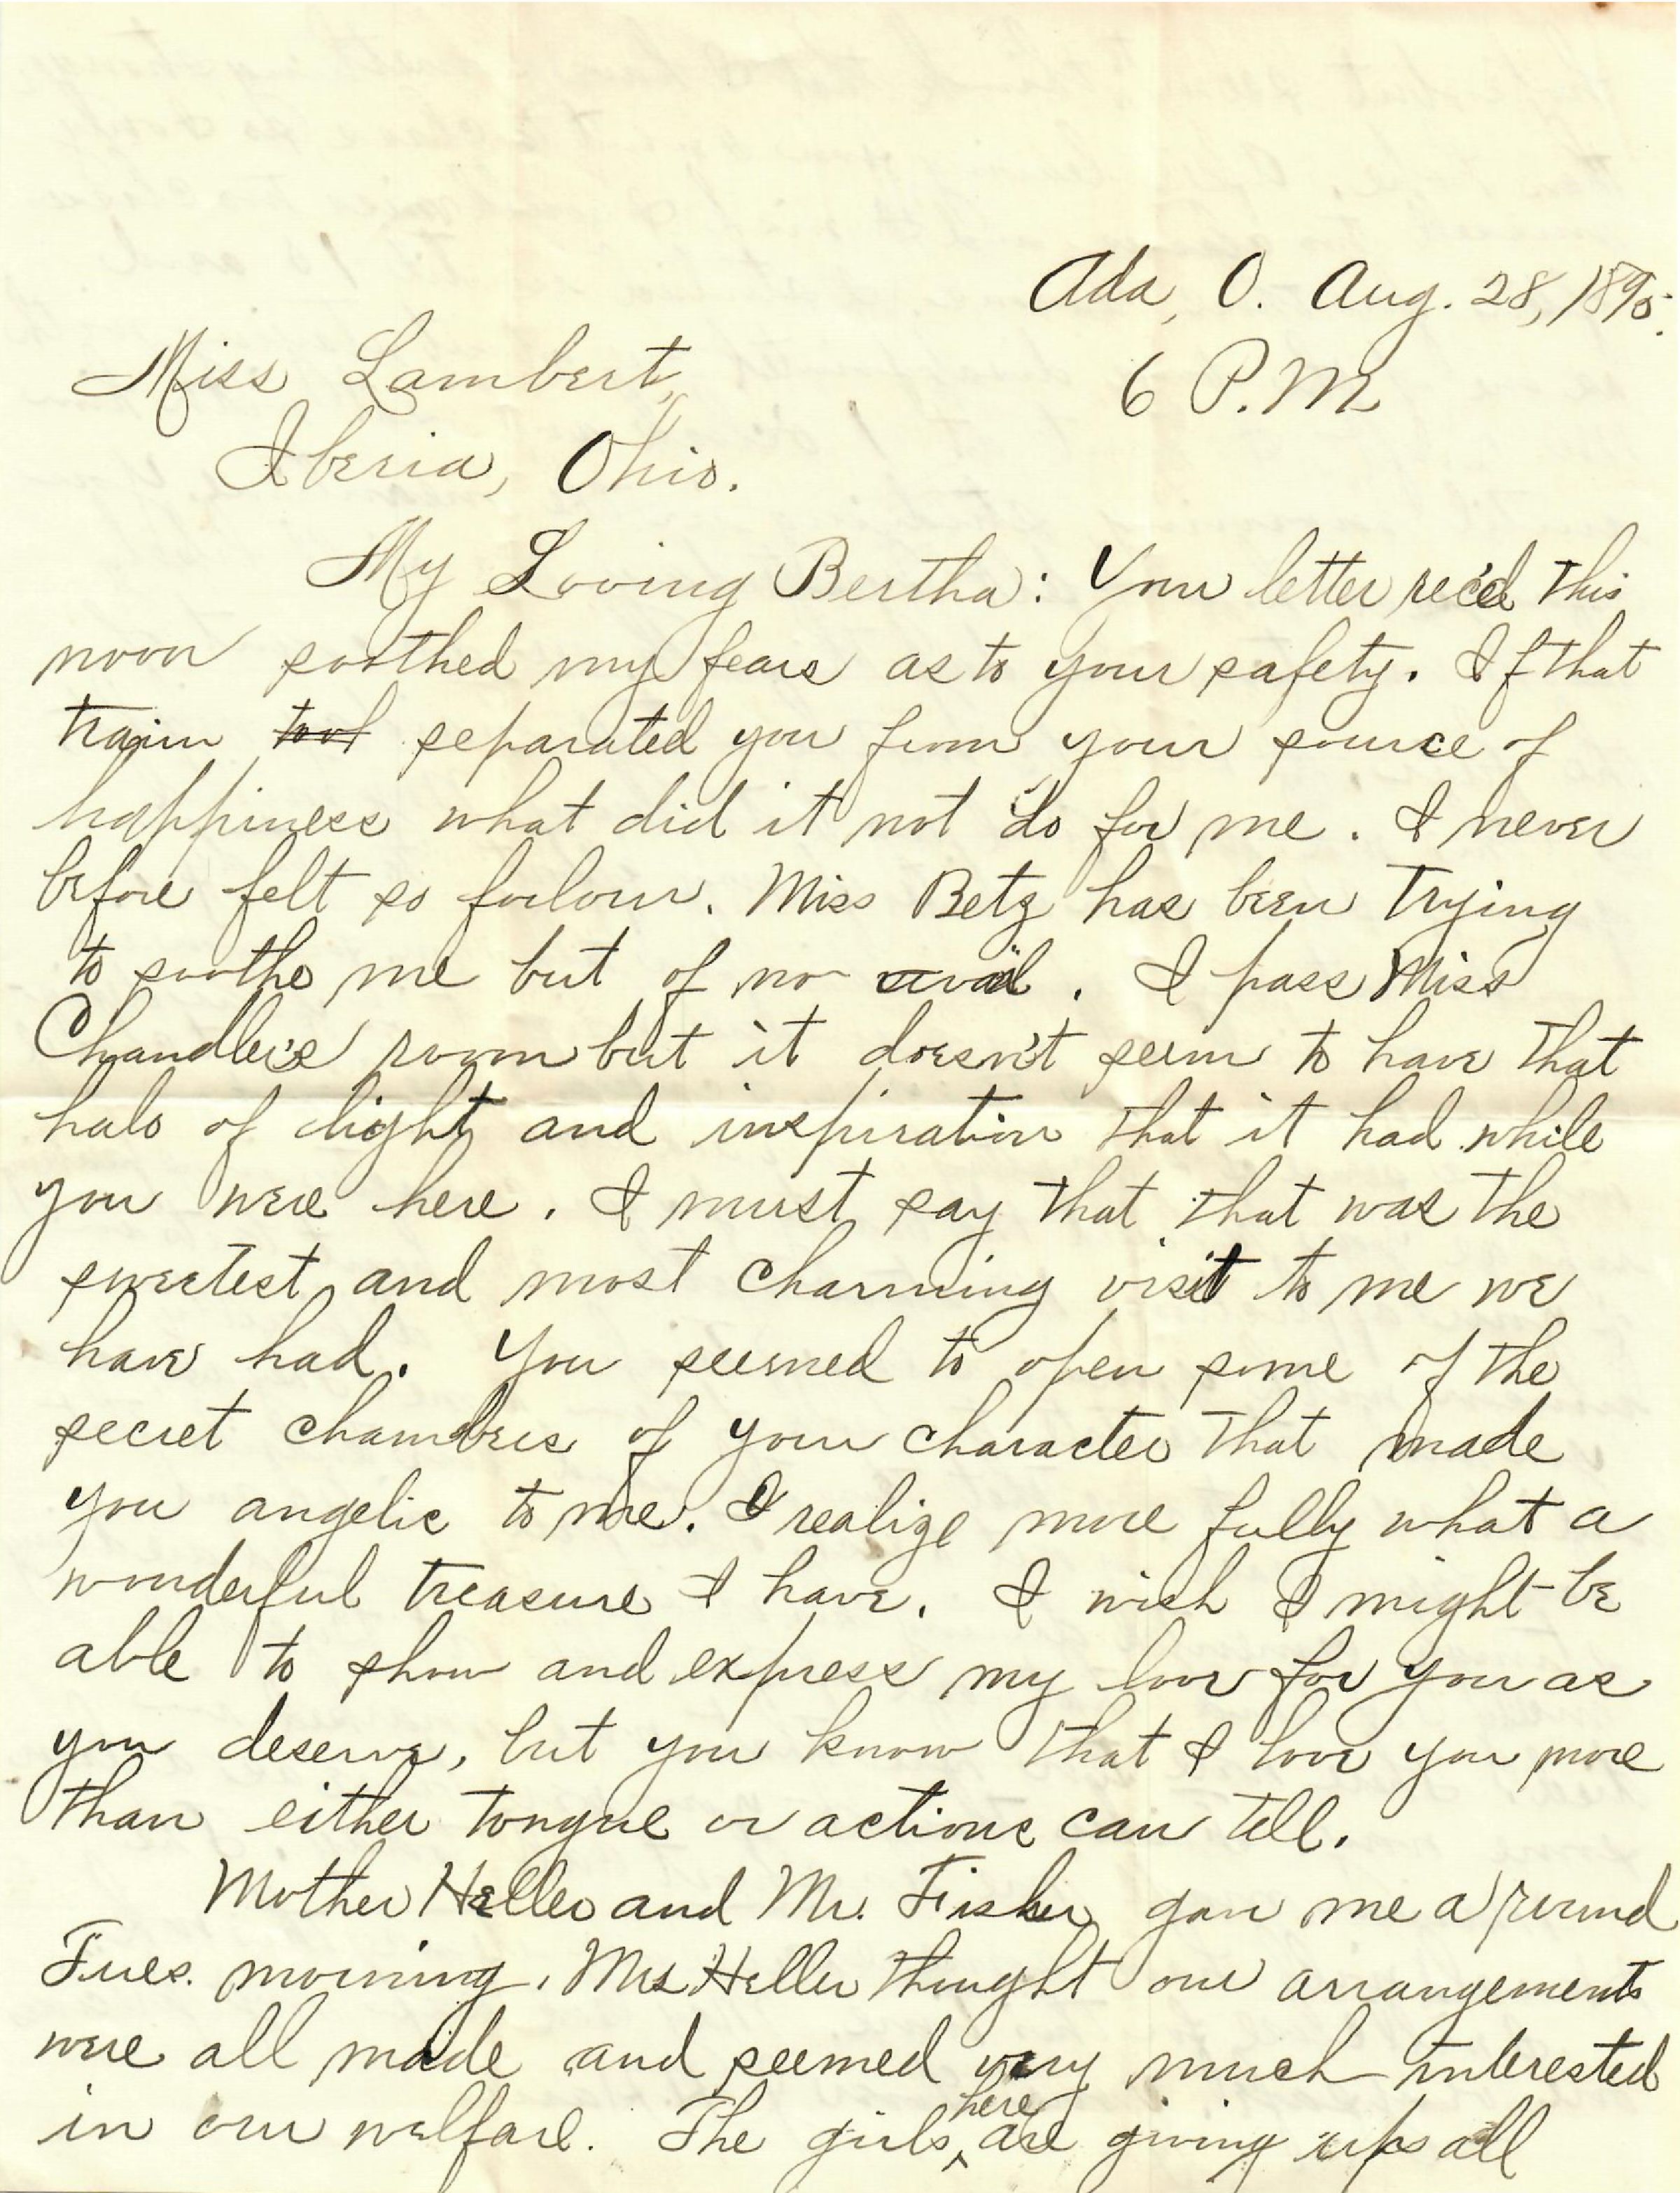 Ada, O. Aug. 28, 1895.
6 P.M
Miss Lambert,
Iberia, Ohio.
My Loving Bertha: Your letter rec'd this
noon soothed my fears as to your safety. If that
train separated you from your source of
happiness what did it not do for me. I never
before felt so forlorn. Miss Betz has been trying
to soothe me but of no avail. I pass Miss
Chandler's room but it doesn't seem to have that
halo of light and inspiration that it had while
you were here. I must say that that was the
sweetest and most charming visit to me we
have had. You seemed to open some of the
secret chambers of your character that made
you angelic to me. I realize more fully what a
wonderful treasure I have. I wish I might be
able to show and express my love for you as
you deserve, but you know that I love you more
than either tongue or actions can tell.
Mother Heller and Mr. Fisher gave me a round
Tues. morning. Mrs Heller thought our arrangements
were all made and seemed very much interested
in our welfare. The girls here are giving up all